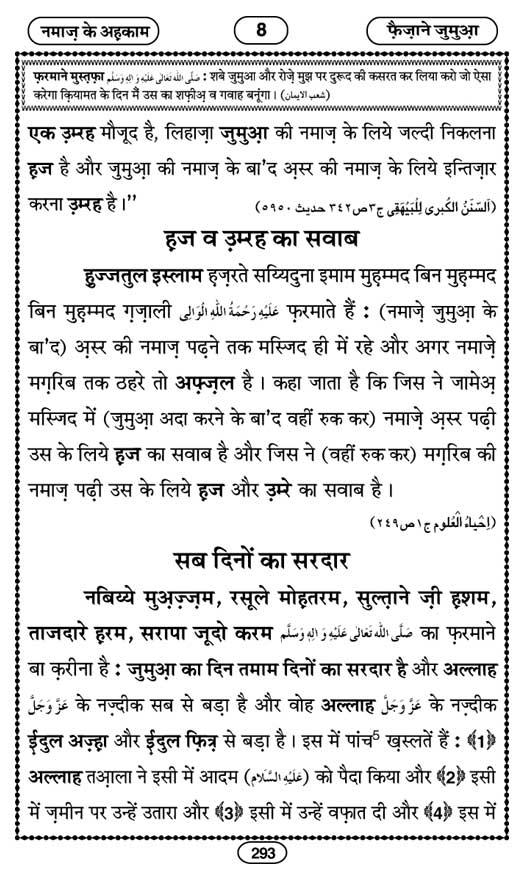 नमाज़ के अह़काम 8 फ़ैज़ाने जुमुआ़
फ़रमाने मुस्त़फ़ा صَلَّی اللہُ تَعَالٰی عَلَیْہِ وَاٰلِہٖ وَسَلَّم : शबे जुमुआ और रोज़े मुझ पर दुरूद की कसरत कर लिया करो जो ऐसा
करेगा क़ियामत के दिन मैं उस का शफ़ीअ़ व गवाह बनूंगा। (شعب الایمان)
एक उ़म्रह मौजूद है, लिहाज़ा जुमुआ़ की नमाज़ के लिये जल्दी निकलना
ह़ज है और जुमुआ़ की नमाज़ के बा'द अ़स्र की नमाज़ के लिये इन्तिज़ार
करना उ़म्रह है।'' (اَلسّنَنُ الکُبری لِلْبَیْہَقِی ج٣ص٣٤٢ حدیث ٥٩٥٠)
ह़ज व उ़म्रह का सवाब
हु़ज्जतुल इस्लाम ह़ज़रते सय्यिदुना इमाम मुह़म्मद बिन मुह़म्मद
बिन मुह़म्मद ग़ज़ाली عَلَیْہِ رَحْمَۃُ اللہِ الْوَالِی फ़रमाते हैं : (नमाज़े जुमुआ़ के
बा'द) अ़स्र की नमाज़ पढ़ने तक मस्जिद ही में रहे और अगर नमाज़े
मग़रिब तक ठहरे तो अफ़्ज़ल है। कहा जाता है कि जिस ने जामेअ़
मस्जिद में (जुमुआ़ अदा करने के बा'द वहीं रुक कर) नमाज़े अ़स्र पढ़ी
उस के लिये ह़ज का सवाब है और जिस ने (वहीं रुक कर) मग़रिब की
नमाज़ पढ़ी उस के लिये ह़ज और उ़म्रे का सवाब है।
(اِحْیاءُ الْعُلوم ج١ص٢٤٩)
सब दिनों का सरदार
नबिय्ये मुअ़ज़्ज़म, रसूले मोह़तरम, सुल्त़ाने ज़ी ह़शम,
ताजदारे ह़रम, सरापा जूदो करम صَلَّی اللہُ تَعَالٰی عَلَیْہِ وَاٰلِہٖ وَسَلَّم का फ़रमाने
बा क़रीना है : जुमुआ़ का दिन तमाम दिनों का सरदार है और अल्लाह
عَزَّوَجَلَّ के नज़्दीक सब से बड़ा है और वोह अल्लाह عَزَّوَجَلَّ के नज़्दीक
ई़दुल अज़्ह़ा और ई़दुल फ़ित्र से बड़ा है। इस में पांच5 ख़स्लतें हैं : ﴾1﴿
अल्लाह तआ़ला ने इसी में आदम (عَلَیْہِ السَّلَام) को पैदा किया और ﴾2﴿ इसी
में ज़मीन पर उन्हें उतारा और ﴾3﴿ इसी में उन्हें वफ़ात दी और ﴾4﴿ इस में
293